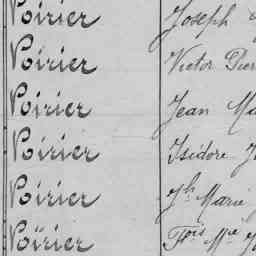 Poirier Joseph
Poirier Victor Pier
Poirier Jean Ma
Poirier Isidore J
Poirier Jh Marie
Poirier Fois Me J